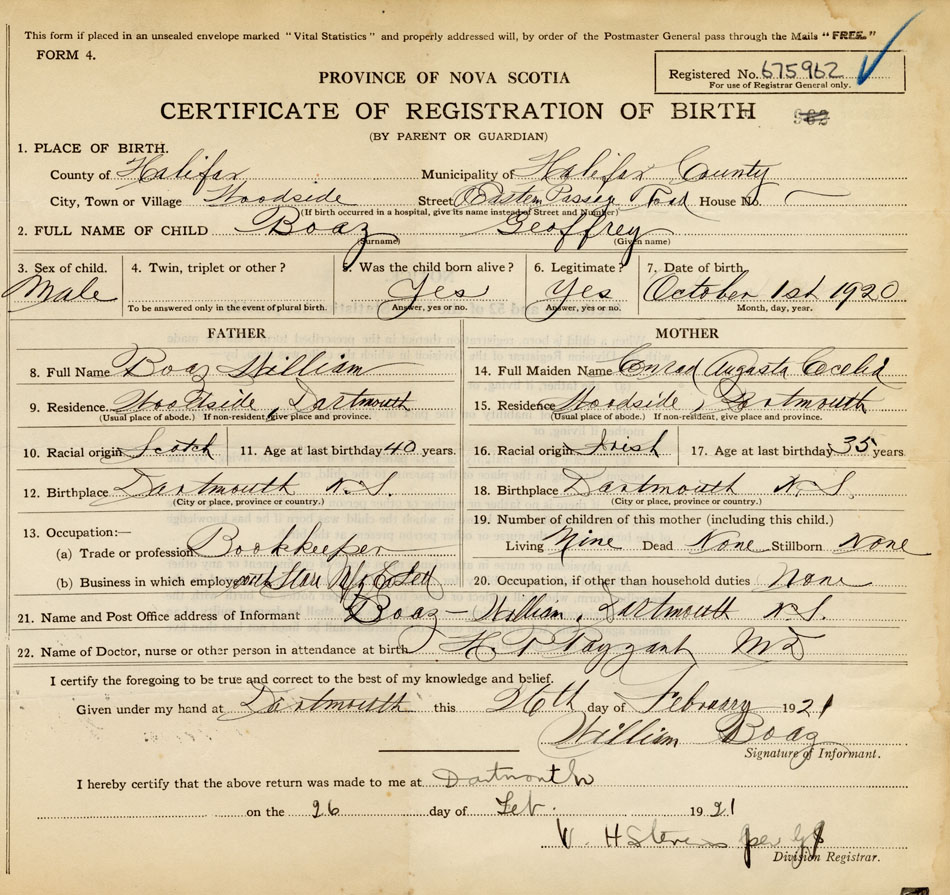 This form if placed in an unsealed envelope marked "Vital Statistics" and properly addressed will, by order of the Postmaster General pass through the Mails "FREE."
FORM 4.
Registered No. 675962
For use of Registrar General only.
PROVINCE OF NOVA SCOTIA
CERTIFICATE OF REGISTRATION OF BIRTH
962
(BY PARENT OR GUARDIAN)
1. PLACE OF BIRTH.
County of Halifax Municipality of Halifax County
City, Town or Village Woodside Street Eastern Passage Road House No.
(If birth occurred in a hospital, give its name instead of Street and Number)
2. FULL NAME OF CHILD Boaz Geoffrey
(Surname) (Given name)
3. Sex of child. 4. Twin, triplet or other? 5. Was the child born alive? 6. Legitimate? 7. Date of birth
Male Yes Yes October 1st 1920
To be answered only in the event of plural birth. Answer, yes or no. Answer, yes or no. Month, day, year.
FATHER MOTHER
8. Full Name Boaz William 14. Full Maiden Name Conrad Augasta Cecelia
9. Residence Woodside, Dartmouth 15. Residence Woodside, Dartmouth
(Usual place of abode.) If non-resident, give place and province. (Usual place of abode.) If non-resident, give place and province.
10. Racial origin Scotch 11. Age at last birthday 40 years. 16. Racial origin Irish 17. Age at last birthday 35 years
12. Birthplace Dartmouth N.S. 18. Birthplace Dartmouth N.S.
(City or place, province or country.) (City or place, province or country.)
13. Occupation:— 19. Number of children of this mother (including this child.)
(a) Trade or profession Bookkeeper Living Nine Dead None Stillborn None
(b) Business in which employed Starr Mfg Co Ltd 20. Occupation, if other than household duties None
21. Name and Post Office address of Informant Boaz - William, Dartmouth N.S.
22. Name of Doctor, nurse or other person in attendance at birth Payzant MD
I certify the foregoing to be true and correct to the best of my knowledge and belief.
Given under my hand at Dartmouth this 26th day of February 1921
William Boaz
Signature of Informant.
I hereby certify that the above return was made to me at Dartmouth
on the 26 day of Feb. 1921
H Stevens
Division Registrar.